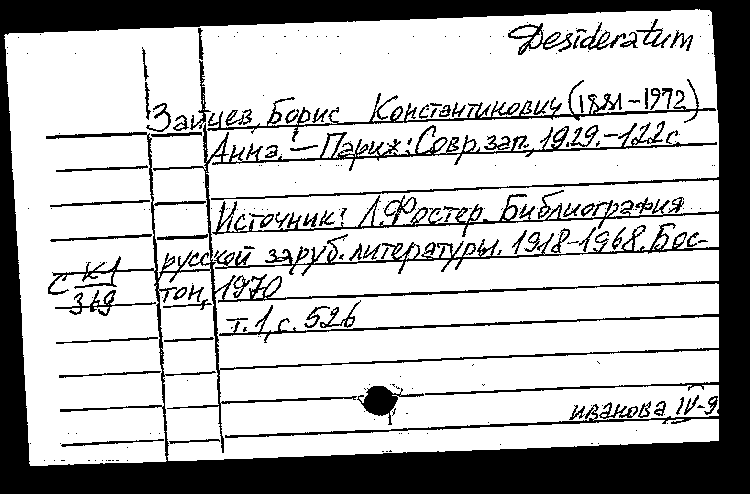 Desideratum
Зайцев, Борис Константинович (1881-1972)
Анна. - Париж: Совр. зап., 1929. - 122 с.
Источник: Л. Фостер. Библиография
русской заруб. литературы. 1918-1968. Бос-
тон, 1970
С К1/369
т. 1, с. 526
иванова, IV-9